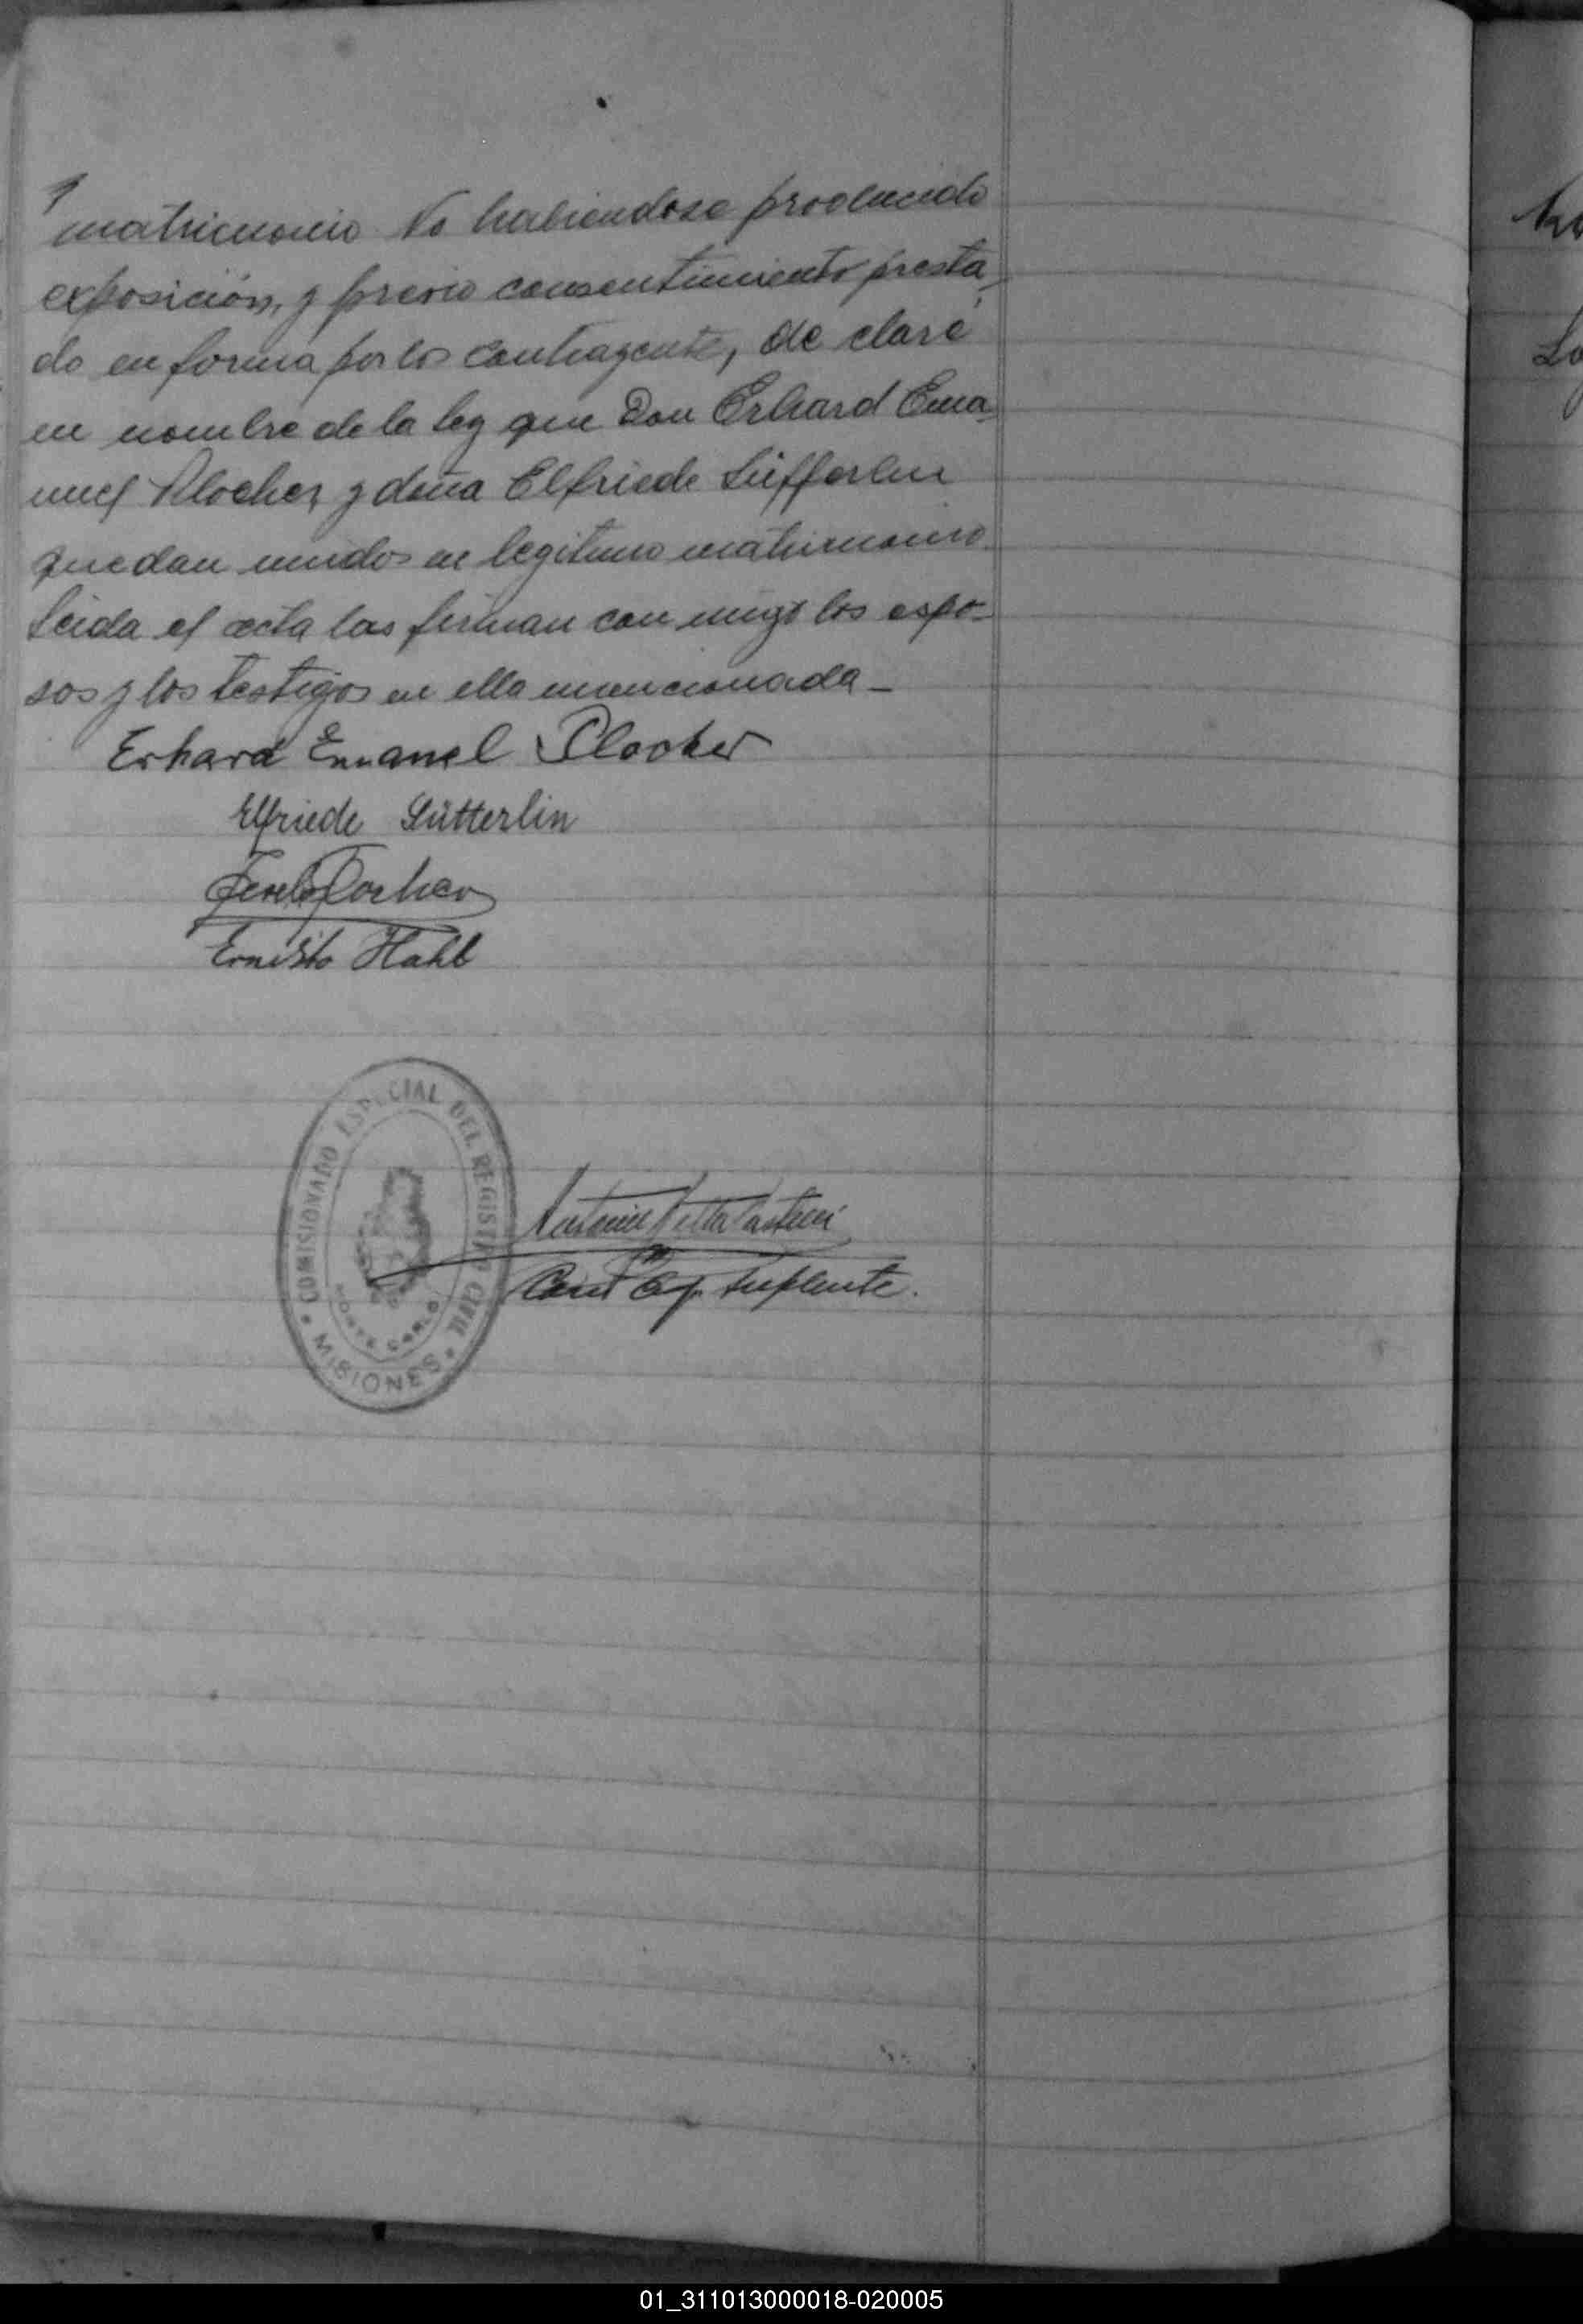 matrimonio No habiendose producido
exposición, y previo consentimiento presta-
do en forma por los contragente, de claré
en nombre de la ley que Don Erhard Ema-
nuel Plocher y doña Elfriede Sütterlin
quedan unidos en legitimo matrimonio.
Leida el acta las firman con migo los espo-
sos y los testigos en ella mencionada -
Erhard Emanel Plocher
Elfriede Sütterlin
Plocher
Ernesto Hahl
COMISIONADO ESPECIAL DEL REGISTRO CIVIL
MONTE CARLO
MISIONES
Antonio
Com Esp. Suplente.
01_311013000018-020005